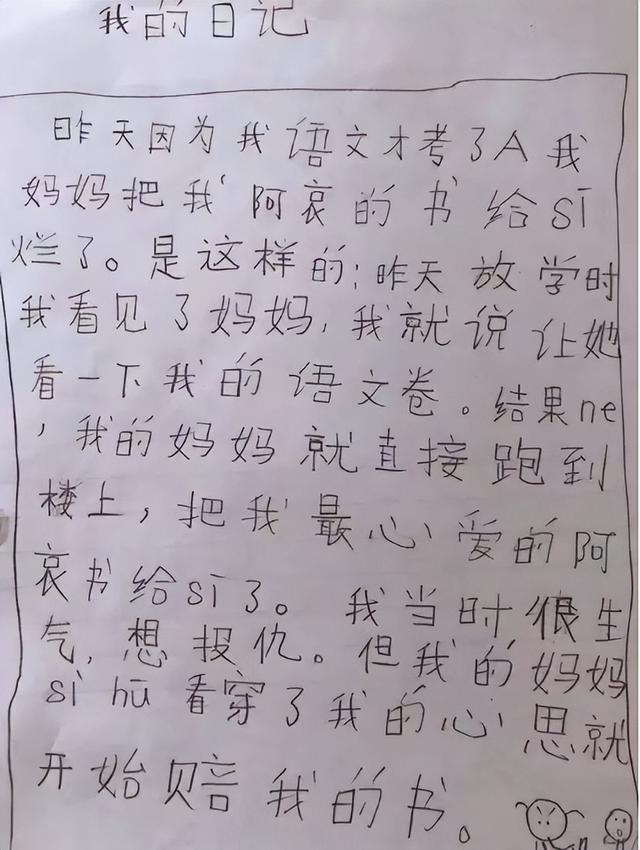 我的日记
昨天因为我语文才考了A我
妈妈把我阿哀的书给sī
烂了。是这样的:昨天放学时
我看见了妈妈,我就说让她
看一下我的语文卷。结果ne
,我的妈妈就直接跑到
楼上,把我最心爱的阿
哀书给sī了。我当时很生
气,想报仇。但我的妈妈
sì hū看穿了我的心思就
开始赔我的书。